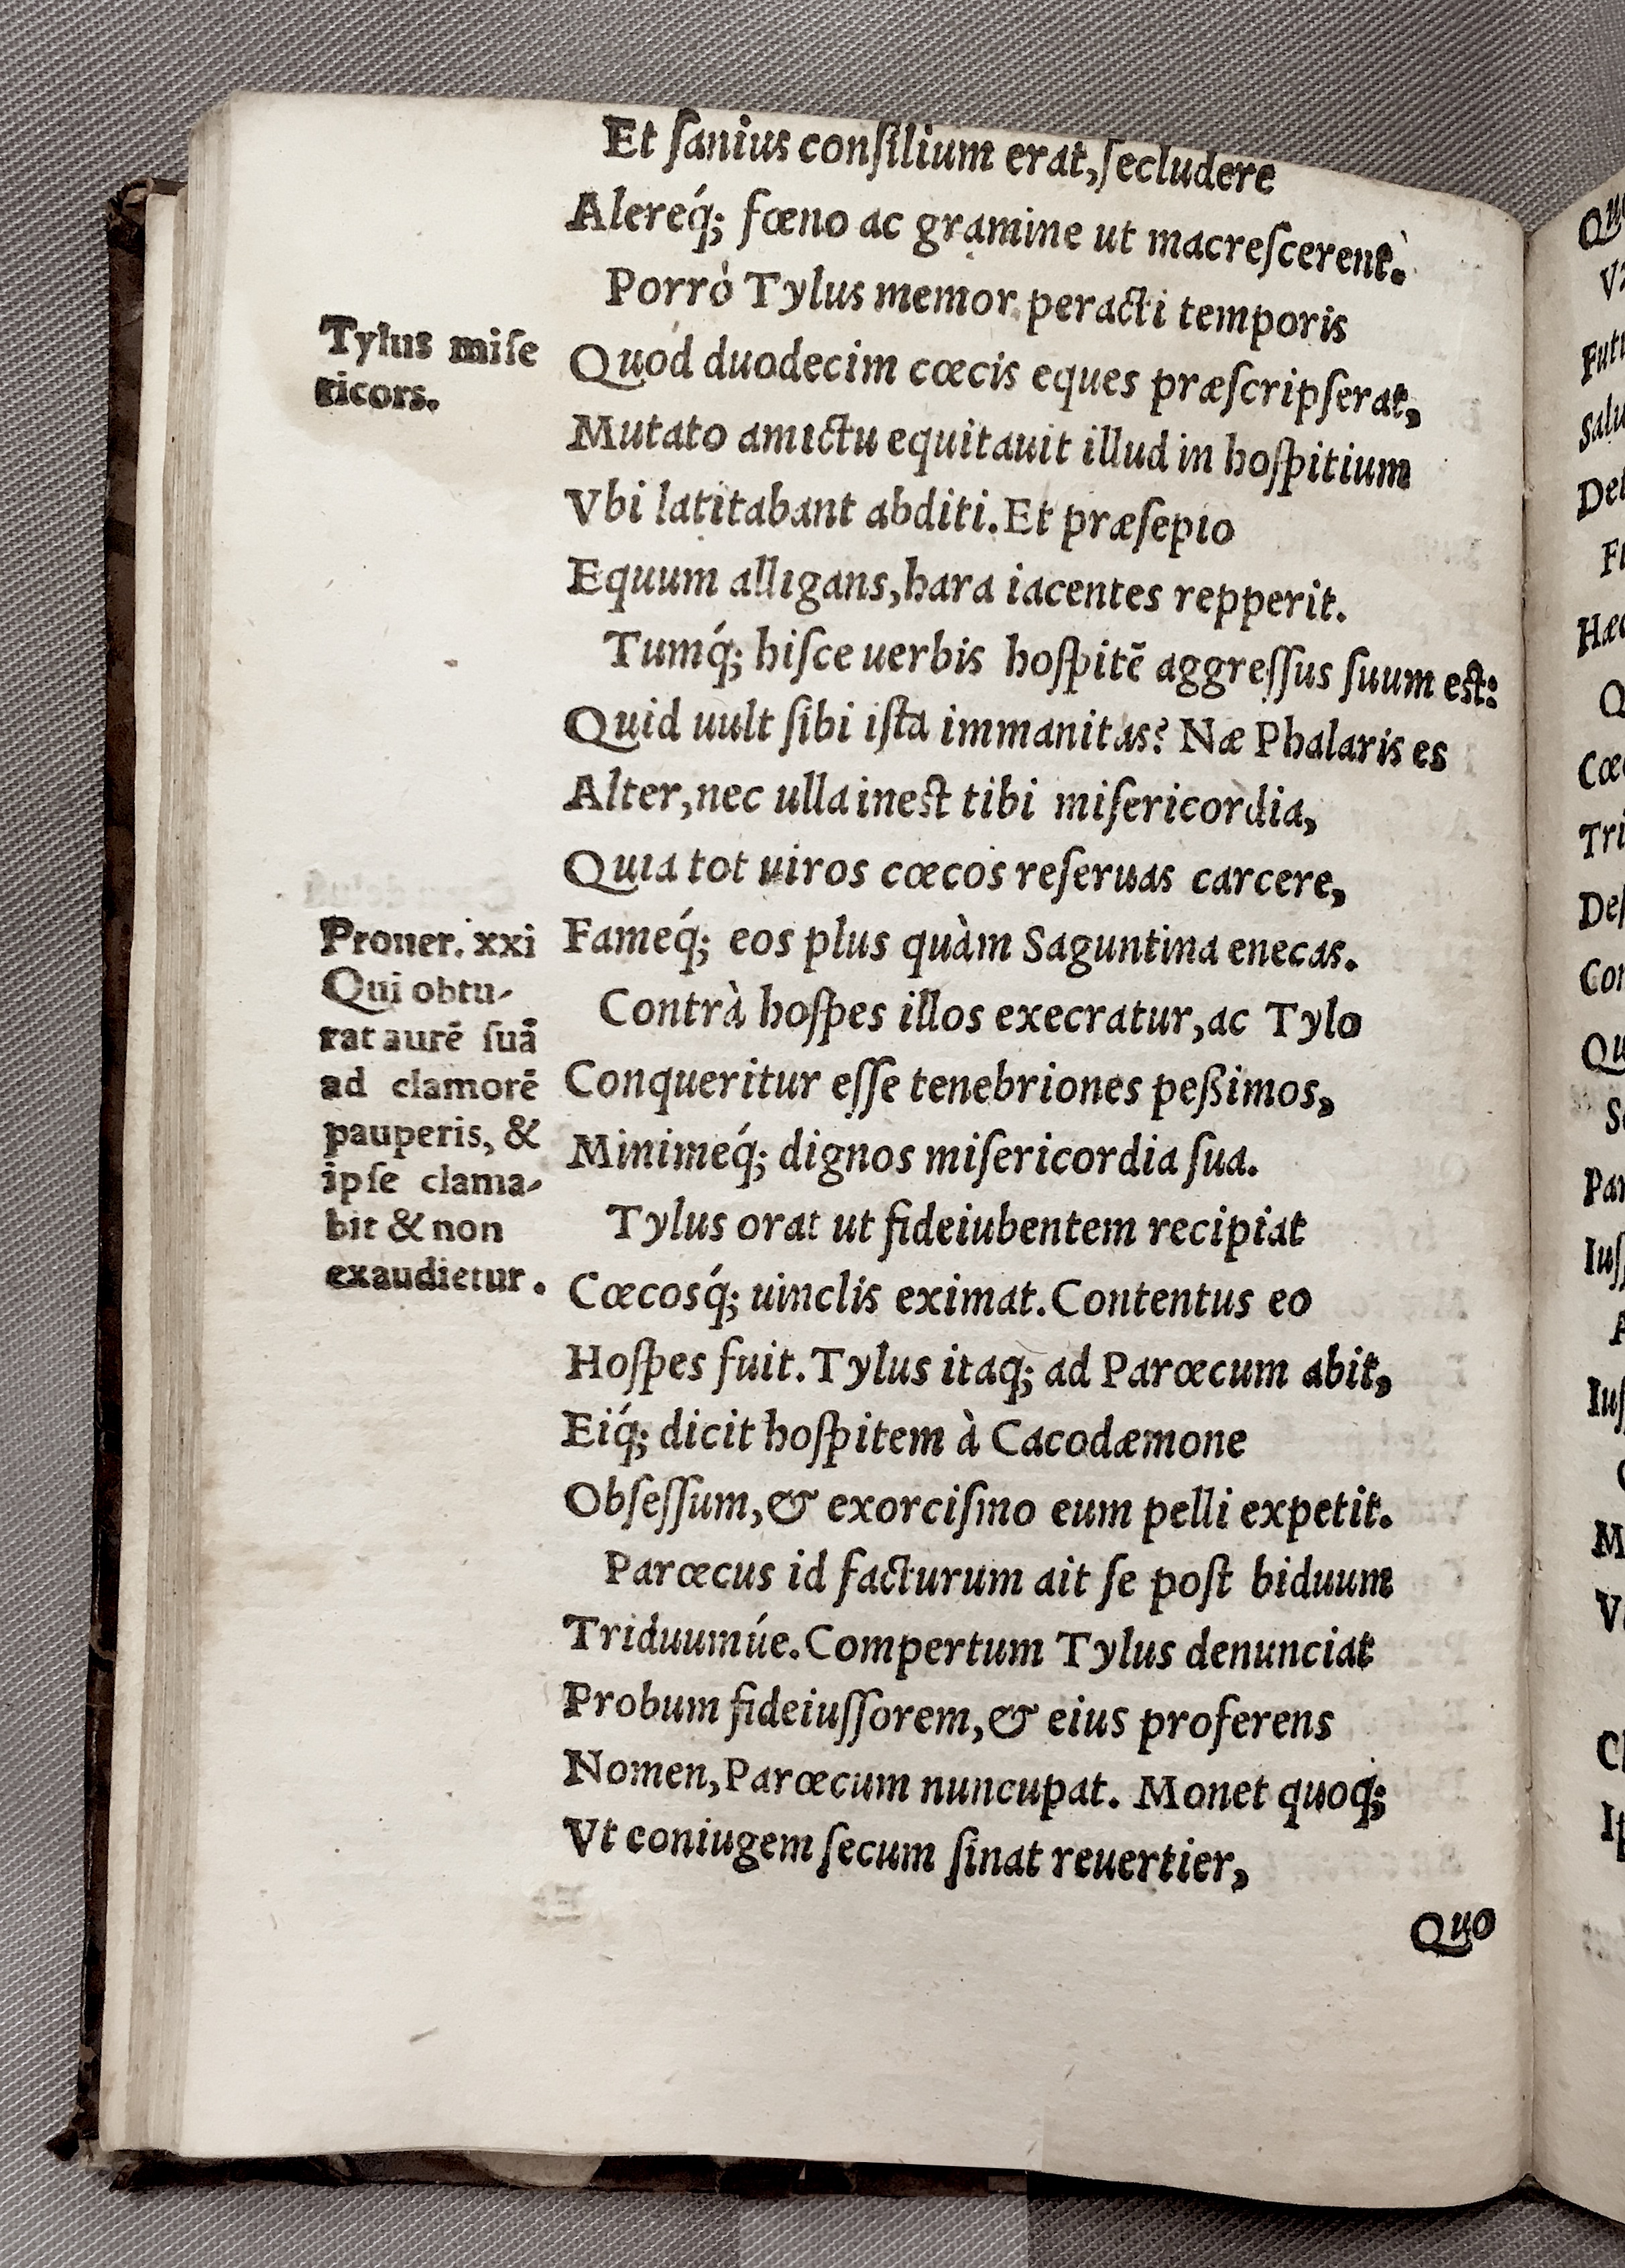 Et ſanius conſilium erat, ſecludere
Alereq́; fœno ac gramine ut macreſcerent.
Porrò Tylus memor peracti temporis
Tylus miſe
ricors.
Quod duodecim cœcis eques præſcripſerat,
Mutato amictu equitauit illud in hoſpitium
Vbi latitabant abditi. Et præſepio
Equum alligans, hara iacentes repperit.
Tumq́; hiſce uerbis hoſpitē aggreſſus ſuum est:
Quid uult ſibi iſta immanitas? Næ Phalaris es
Alter, nec ulla inest tibi miſericordia,
Quia tot uiros cœcos reſeruas carcere,
Fameq́; eos plus quàm Saguntina enecas.
Prouer. xxi
Qui obtu-
rat aurē ſuā
ad clamorē
pauperis, &
ipſe clama-
bit & non
exaudietur.
Contrà hoſpes illos execratur, ac Tylo
Conqueritur eſſe tenebriones peßimos,
Minimeq́; dignos miſericordia ſua.
Tylus orat ut fideiubentem recipiat
Cœcosq́; uinclis eximat. Contentus eo
Hoſpes fuit. Tylus itaq; ad Parœcum abit,
Eiq́; dicit hoſpitem à Cacodæmone
Obſeſſum, & exorciſmo eum pelli expetit.
Parœcus id facturum ait ſe poſt biduum
Triduumúe. Compertum Tylus denunciat
Probum fideiuſſorem, & eius proferens
Nomen, Parœcum nuncupat. Monet quoq́;
Vt coniugem ſecum ſinat reuertier,
Quo